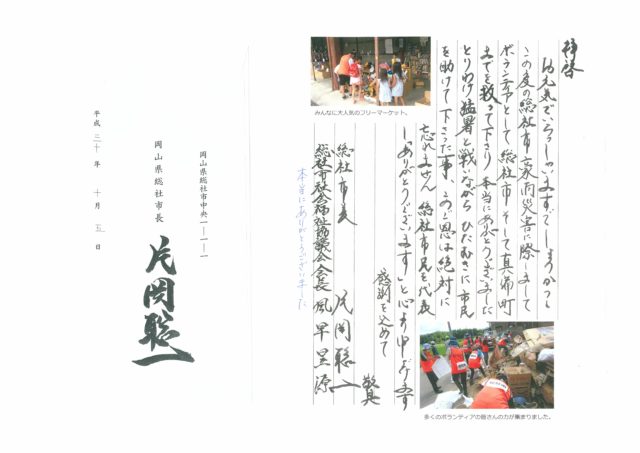 拝啓
お元気でいらっしゃいますでしょうか。
この度の総社市豪雨災害に際しまして
ボランティアとして総社市そして真備町
までを救って下さり本当にありがとうございました
とりわけ猛暑と戦いながらひたむきに市民
を助けて下さった事、このご恩は絶対に
忘れません 総社市民を代表
し「ありがとうございます」と心より申し上げます
感謝を込めて
総社市長 片岡聡一
総社市社会福祉協議会会長 風早昱源
本当にありがとうございました
みんなに大人気のフリーマーケット。
多くのボランティアの皆さんの力が集まりました。
岡山県総社市中央一-一-一
岡山県総社市長
片岡聡一
平成三十年十月五日